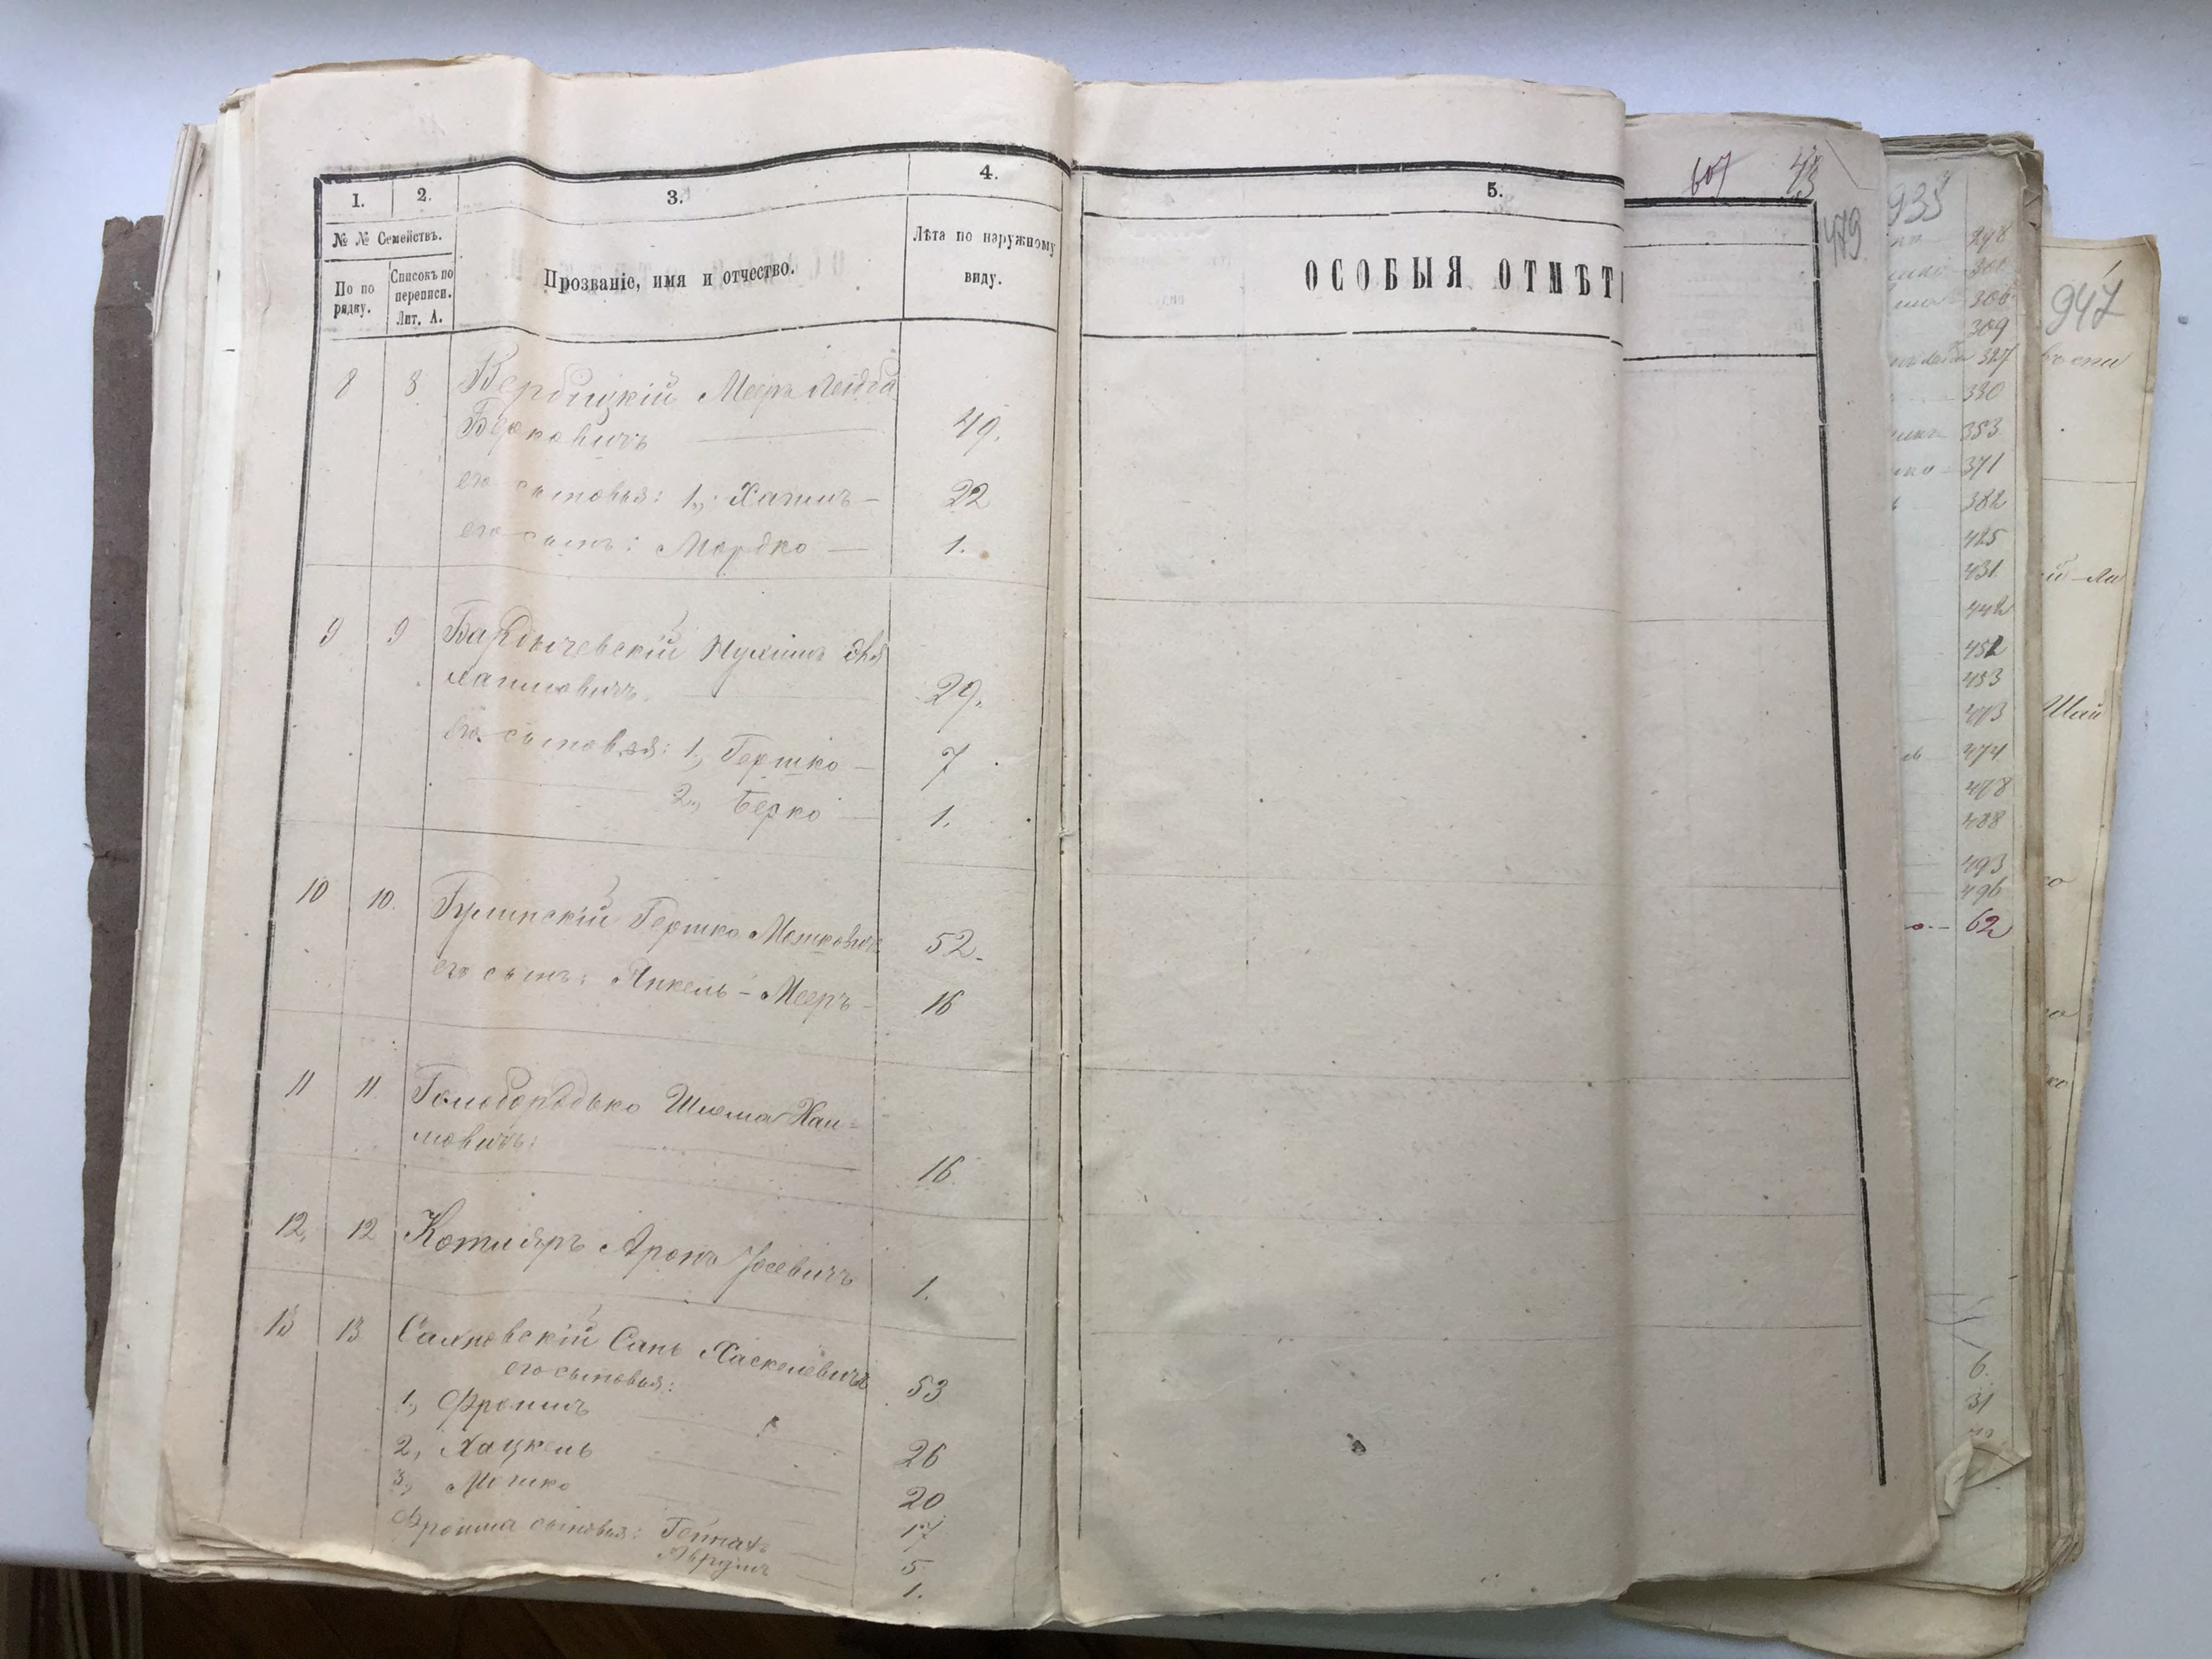 1. 2. 3. 4.
№ № Семействъ.
По по рядку.
Списокъ по переписи. Лит. А.
Прозваніе, имя и отчество.
Лѣта по наружному виду.
5.
ОСОБЫЯ ОТМѢТ
607 43
479
8 8 Вербицкій Мееръ Лейба
Берковичъ 49.
его сыновья: 1., Хаимъ 22
его сынъ: Мордко 1.
9 9 Бардычевскій Нухимъ
Хаимовичъ 29.
его сыновья: 1., Гершко 7
2., Берко 1.
10 10. Гершко Мошковичъ 52.
его сынъ: Янкель-Мееръ 16
11 11. Голобородько Шлема Хаи-
мовичъ: 16
12, 12 Котляръ Аронъ Іосевичъ 1.
13 13 Хаскелевичъ 53
его сыновья:
1., Фроимъ 26
2, Хацкель 20
3, Мошко 17
Фроима сыновья: 5
1.
935
298
309
327
330
353
371
382
425
431
442
452
453
474
478
488
493
496
62
6.
31
947
Шай